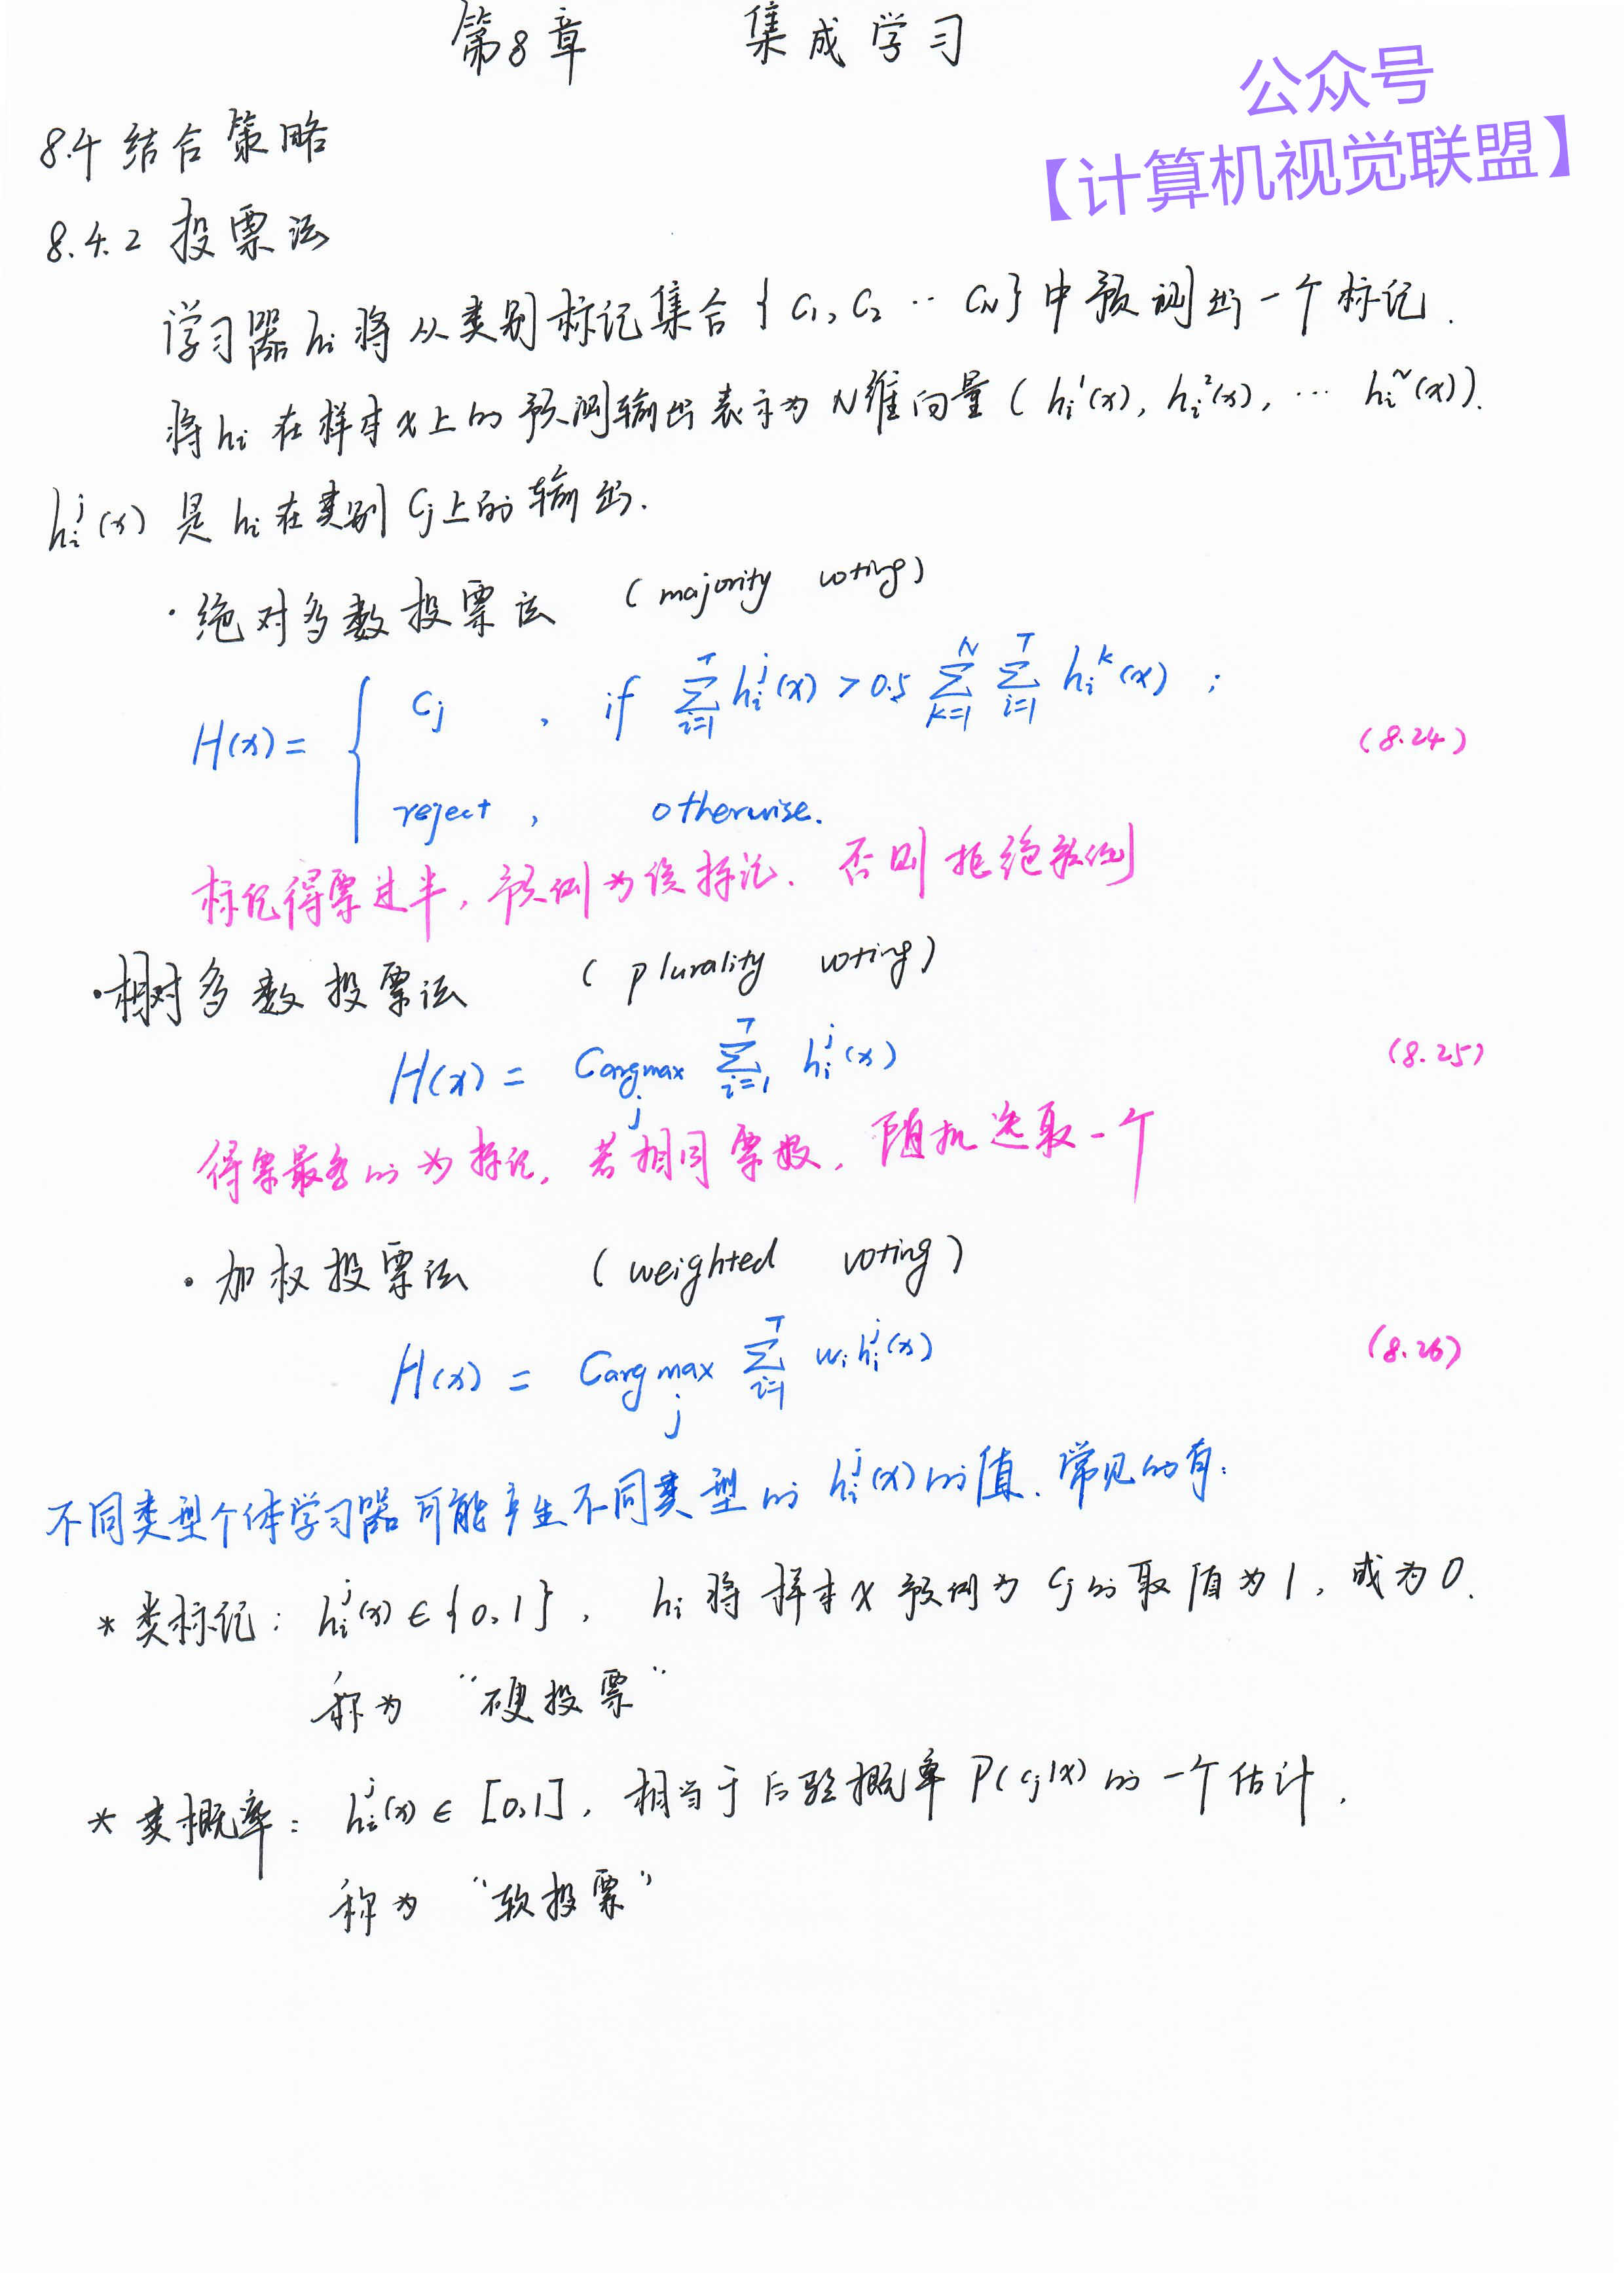 第8章 集成学习
公众号
【计算机视觉联盟】
8.4 结合策略
8.4.2 投票法
学习器 hᵢ 将从类别标记集合 { c₁, c₂ ·· c_N } 中预测出一个标记.
将 hᵢ 在样本 x 上的预测输出表示为 N维向量 ( hᵢ¹(x), hᵢ²(x), ··· hᵢᴺ(x) ).
hᵢʲ(x) 是 hᵢ 在类别 cⱼ 上的输出.
· 绝对多数投票法 ( majority voting )
H(x) = { cⱼ , if ∑_{i=1}^{T} hᵢʲ(x) > 0.5 ∑_{k=1}^{N} ∑_{i=1}^{T} hᵢᵏ(x) ;
(8.24)
reject , otherwise.
标记得票过半, 预测为该标记. 否则拒绝预测
· 相对多数投票法 ( plurality voting )
H(x) = C_{argmax_j} ∑_{i=1}^{T} hᵢʲ(x) (8.25)
得票最多的为标记, 若相同票数, 随机选取一个
· 加权投票法 ( weighted voting )
H(x) = C_{argmax_j} ∑_{i=1}^{T} wᵢhᵢʲ(x) (8.26)
不同类型个体学习器可能产生不同类型的 hᵢʲ(x) 的值. 常见的有:
* 类标记: hᵢʲ(x) ∈ {0,1}, hᵢ 将样本 x 预测为 cⱼ 的取值为1, 或为0.
称为 “硬投票”
* 类概率: hᵢʲ(x) ∈ [0,1], 相当于后验概率 P(cⱼ|x) 的一个估计,
称为 “软投票”